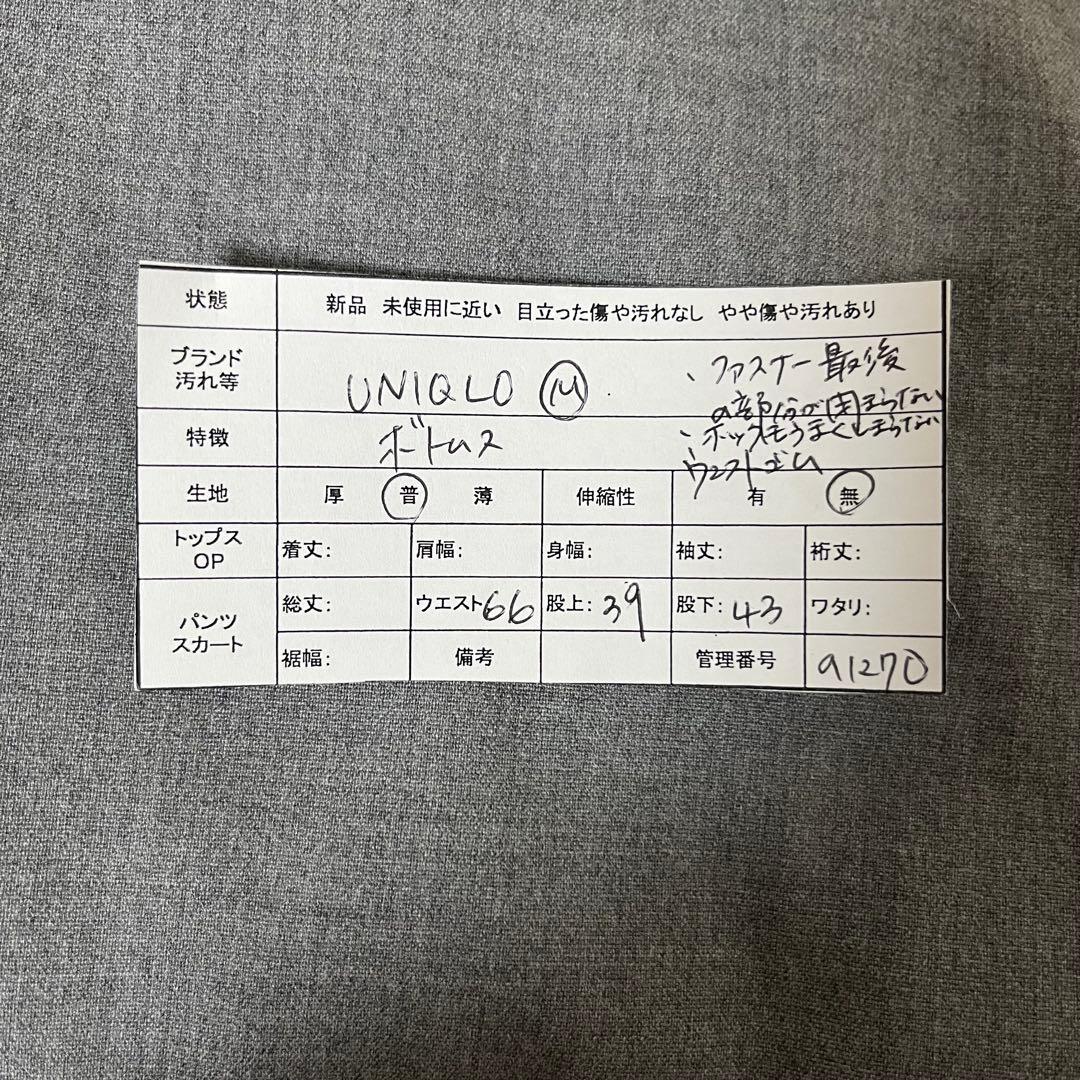 状態 新品 未使用に近い 目立った傷や汚れなし やや傷や汚れあり
ブランド
汚れ等
UNIQLO M
、ファスナー最後
の部分が閉まらない
特徴 ボトムス
、ホックもうまくしまらない
ウエストゴム
生地 厚 普 薄 伸縮性 有 無
トップス
OP
着丈: 肩幅: 身幅: 袖丈: 裄丈:
パンツ
スカート
総丈: ウエスト66 股上:39 股下:43 ワタリ:
裾幅: 備考 管理番号 a1270